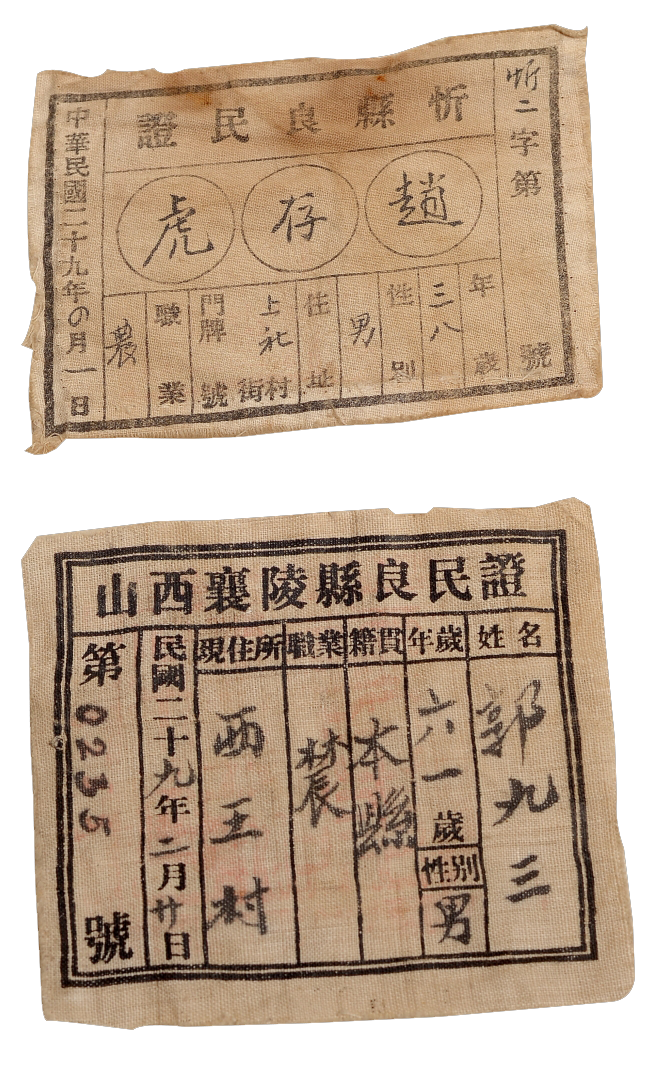 忻縣良民證
忻二字第
號
趙存虎
年歲
三八
性別
男
住址
上社村街
門牌號
職業
農
中華民國二十九年の月一日
山西襄陵縣良民證
姓名
郭九三
年歲
六一歲
性別
男
籍貫
本縣
職業
農
現住所
西王村
民國二十九年二月廿日
第0235號